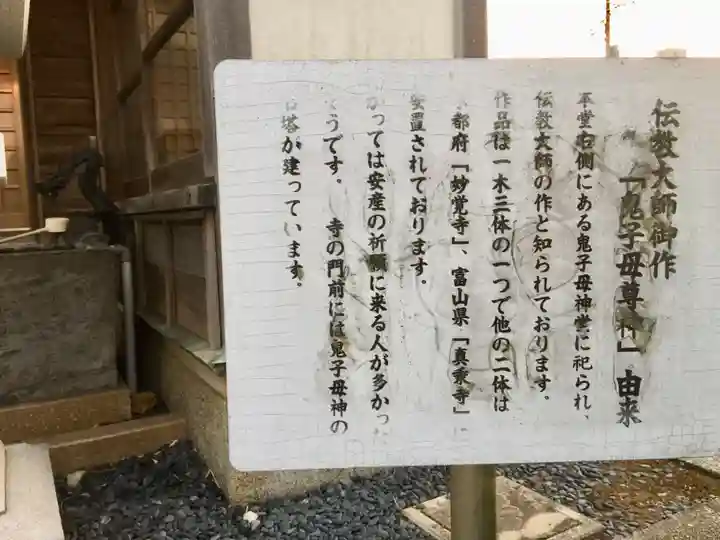 伝教大師御作
「鬼子母尊神」由来
本堂右側にある鬼子母神堂に祀られ、
伝教大師の作と知られております。
作品は一木三体の一つで他の二体は
都府「妙覚寺」、富山県「真乗寺」に
安置されております。
かっては安産の祈願に来る人が多かった
うです。 寺の門前には鬼子母神の
石塔が建っています。